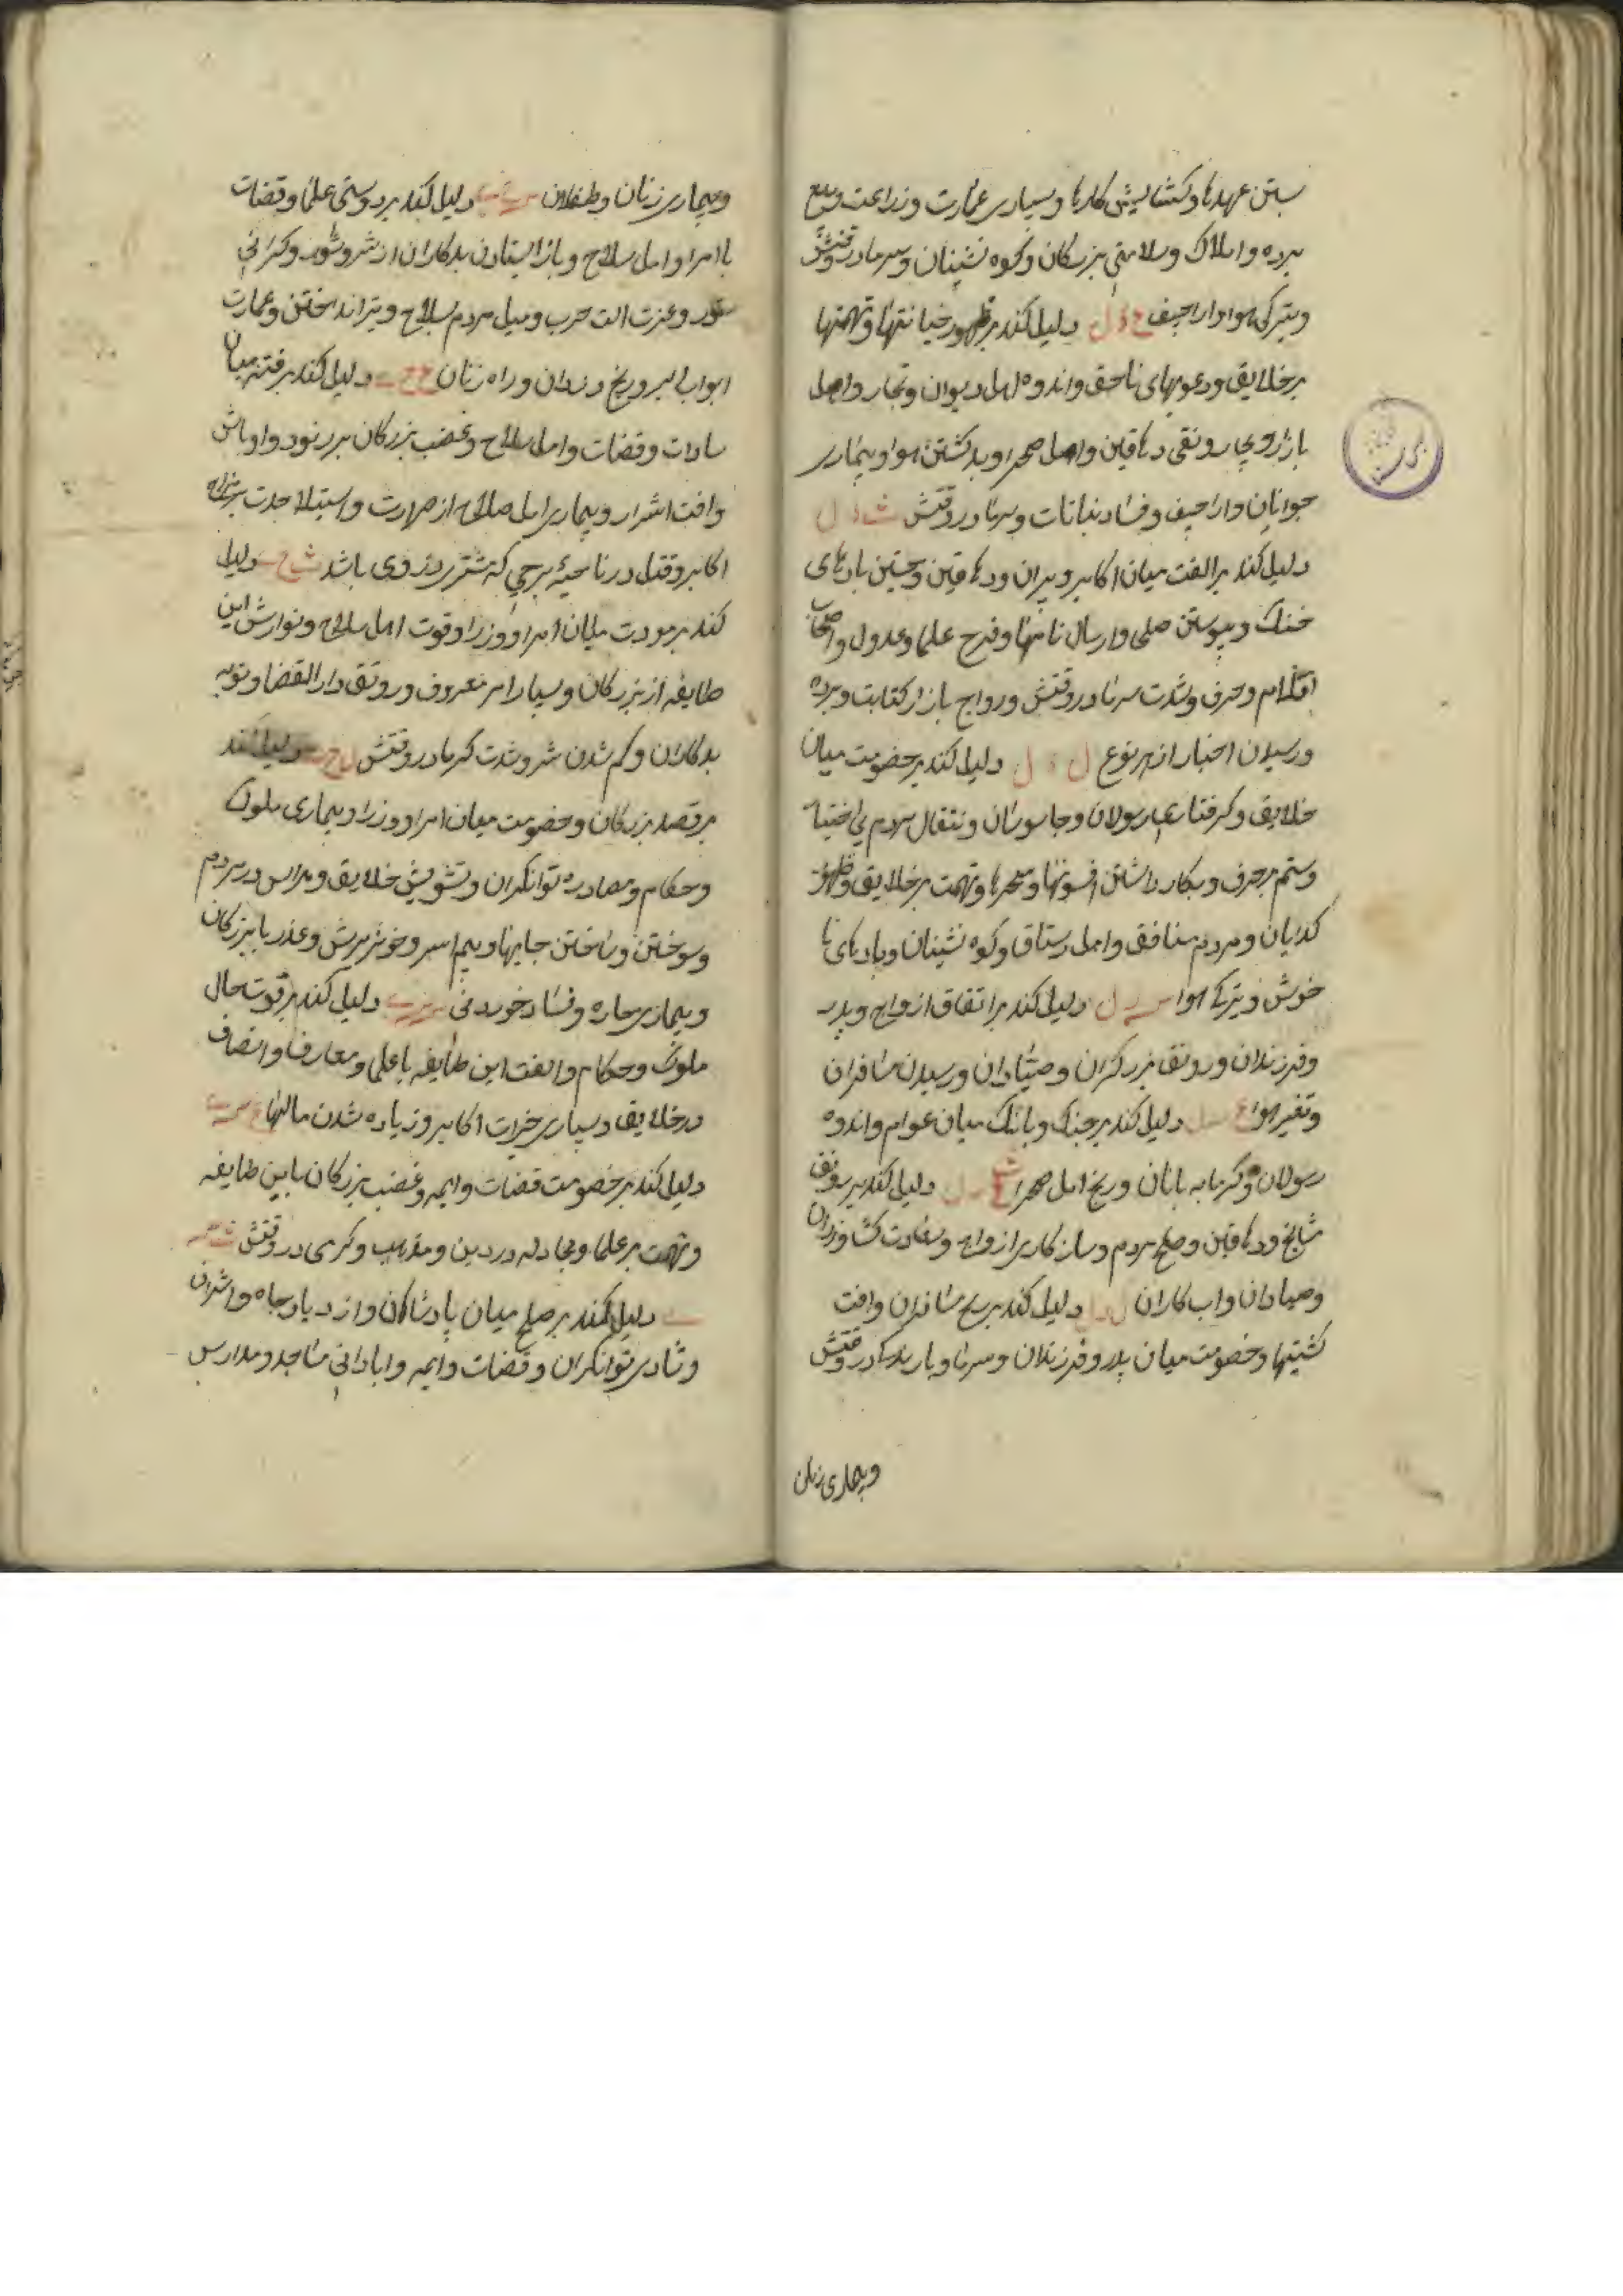 بستن عهدها و کشایش کارها و بسیاری عمارت و زراعت و بیع
برده و املاک و سلامتی بزرکان و کوه نشینان و سرما در وقتش
و تیرکی هوا و اراجیف دلیل کند بر ظهور خیانتها و تهمتها
بر خلایق و دعویهای ناحق و اندوه اهل دیوان و تجار و اهل
بازار و بی رونقی دهاقین و اهل صحرا و بد کشتن هوا و بیماری
جوانان و اراجیف و فساد نباتات و سرما در وقتش
دلیل کند بر الفت میان اکابر و پیران و دهاقین و جستن بادهای
خنک و پیوستن صلح و ارسال نامها و فرح علما و عدول و اصحاب
اقلام و حرف و شدت سرما در وقتش و رواج بازار کتابت و برده
و رسیدن اخبار از هر نوع ل ل دلیل کند بر خصومت میان
خلایق و کرفتاری رسولان و جاسوسان و انتقال مردم بی اختیار
و ستم بر حرف و بکار داشتن افسونها و سحرها و تهمت بر خلایق و ظهور
کدایان و مردم منافق و اهل رستاق و کوه نشینان و بادهای نا
خوش و تیرکی هوا دلیل کند بر اتفاق ازواج و پدر
و فرزندان و رونق بزرکران و صیادان و رسیدن مسافران
و تغیر هوا دلیل کند بر جنک و بانک میان عوام و اندوه
رسولان و کرمابه بانان و رنج اهل صحرا دلیل کند بر رونق
مشایخ و دهاقین و صلح مردم و سازکاری ازواج و سعادت کشاورزان
و صیادان و اب کاران دلیل کند بر رنج مسافران و افت
کشتیها و خصومت میان پدر و فرزندان و سرما و بارندکی در وقتش
و بیماری زنان
و بیماری زنان و طفلان دلیل کند بر دوستی علما و قضات
با امرا و اهل سلاح و باز ایستادن بدکاران از شر و شور و کرانی
ستور و عزت الت حرب و میل مردم بسلاح و تیر انداختن و عمارت
ابواب البر و رنج دزدان و راه زنان دلیل کند بر فتنه میان
سادات و قضات و اهل سلاح و غضب بزرکان بر رنود و اوباش
و افت اشرار و بیماری اهل صلاح از حرارت و استیلا حدت
اکابر و قتل در ناحیهٔ برجی که مشتری در وی باشد دلیل
کند بر مودت میان امرا و وزرا و قوت اهل سلاح و نوازش این
طایفه از بزرکان و بسیار امر معروف و رونق دار القضا و توبه
بدکاران و کم شدن شر و شدت کرما در وقتش دلیل کند
بر قصد بزرکان و خصومت میان امرا و وزرا و بیماری ملوک
و حکام و مصادره توانکران و تشویش خلایق و هراس در مردم
و سوختن و تاختن جایها و بیم اسر و خونریزش و غدر با بزرکان
و بیماری حاره و فساد خوردنی دلیل کند بر قوت حال
ملوک و حکام و الفت این طایفه با علما و معارف و انصاف
در خلایق و بسیاری خیرات اکابر و زیاده شدن مالها
دلیل کند بر خصومت قضات و ایمه و غضب بزرکان با این طایفه
و تهمت بر علما و مجادله در دین و مذهب و کرمی در وقتش
دلیل کند بر صلح میان پادشاهان و ازدیاد جاه و اشراف
و شادی توانکران و قضات و ایمه و ابادانی مساجد و مدارس